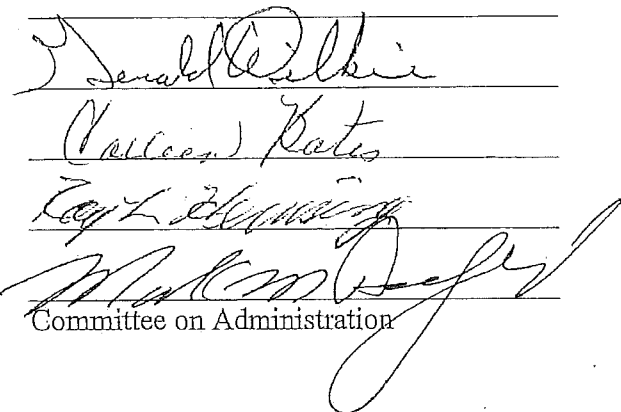 Gerald Wilkie
Colleen Kates
Ray L. Henning
Mark M
Committee on Administration